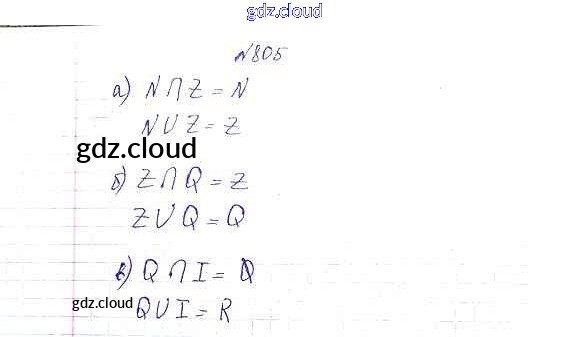 gdz.cloud
№805
а) N ∩ Z = N
N ∪ Z = Z
gdz.cloud
б) Z ∩ Q = Z
Z ∪ Q = Q
в) Q ∩ I =
gdz.cloud
Q ∪ I = R